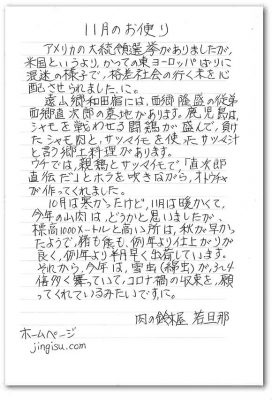 11月のお便り
アメリカの大統領選挙がありましたが、
米国というより、かつての東ヨーロッパばりに
混迷の様子で、格差社会の行く末を心
配させられました、に。
遠山郷和田宿には、西郷隆盛の従弟
西郷直次郎の墓地があります。鹿児島は、
シャモを戦わせる闘鶏が盛んで、負け
たシャモ肉と、サツマイモを使ったサツマ汁
と言う郷土料理があります。
ウチでは、親鶏とサツマイモで、「直次郎
直伝だ」とホラを吹きながら、オトウチャ
が作ってくれました。
10月は寒かったけど、11月は暖かくて、
今年の山肉は、どうかと思いましたが、
標高1000メートルと高い所は、秋が早かっ
たようで、猪も熊も、例年より仕上がりが
良く、例年より半月早く出荷しています。
それから、今年は、雪虫(綿虫)が、3〜4
倍多く舞っていて、コロナ禍の収束を、願
ってくれているみたいですに。
肉の鈴木屋 若旦那
ホームページ
jingisu.com